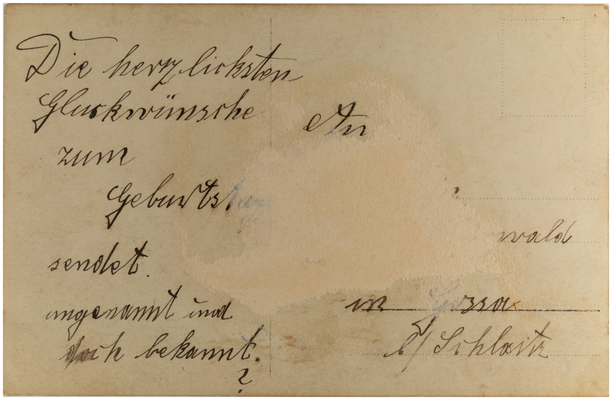 Die herzlichsten
Glückwünsche
zum
Geburts
sendet.
ungenannt und
doch bekannt.
?
An
wald
in Gossa
b/ Schlaitz